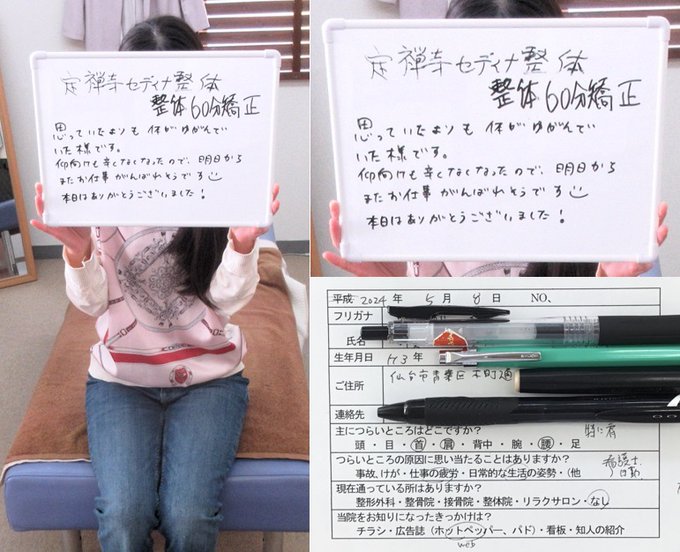 定禅寺セディナ整体
整体60分矯正
思っていたよりも体がゆがんで
いた様です。
仰向けも辛くなくなったので、明日から
またお仕事がんばれそうです
本日はありがとうございました!
定禅寺セディナ整体
整体60分矯正
思っていたよりも体がゆがんで
いた様です。
仰向けも辛くなくなったので、明日から
またお仕事がんばれそうです
本日はありがとうございました!
平成 2024 年 5 月 8 日 NO、
フリガナ
氏名
生年月日 H3 年
ご住所 仙台市青葉区木町通
連絡先
主につらいところはどこですか? 特に肩
頭・目・首・肩・背中・腕・腰・足
つらいところの原因に思い当たることはありますか?
事故、けが・仕事の疲労・日常的な生活の姿勢・(他
現在通っている所はありますか?
整形外科・整骨院・接骨院・整体院・リラクサロン・なし
当院をお知りになったきっかけは?
チラシ・広告誌(ホットペッパー、パド)・看板・知人の紹介
web